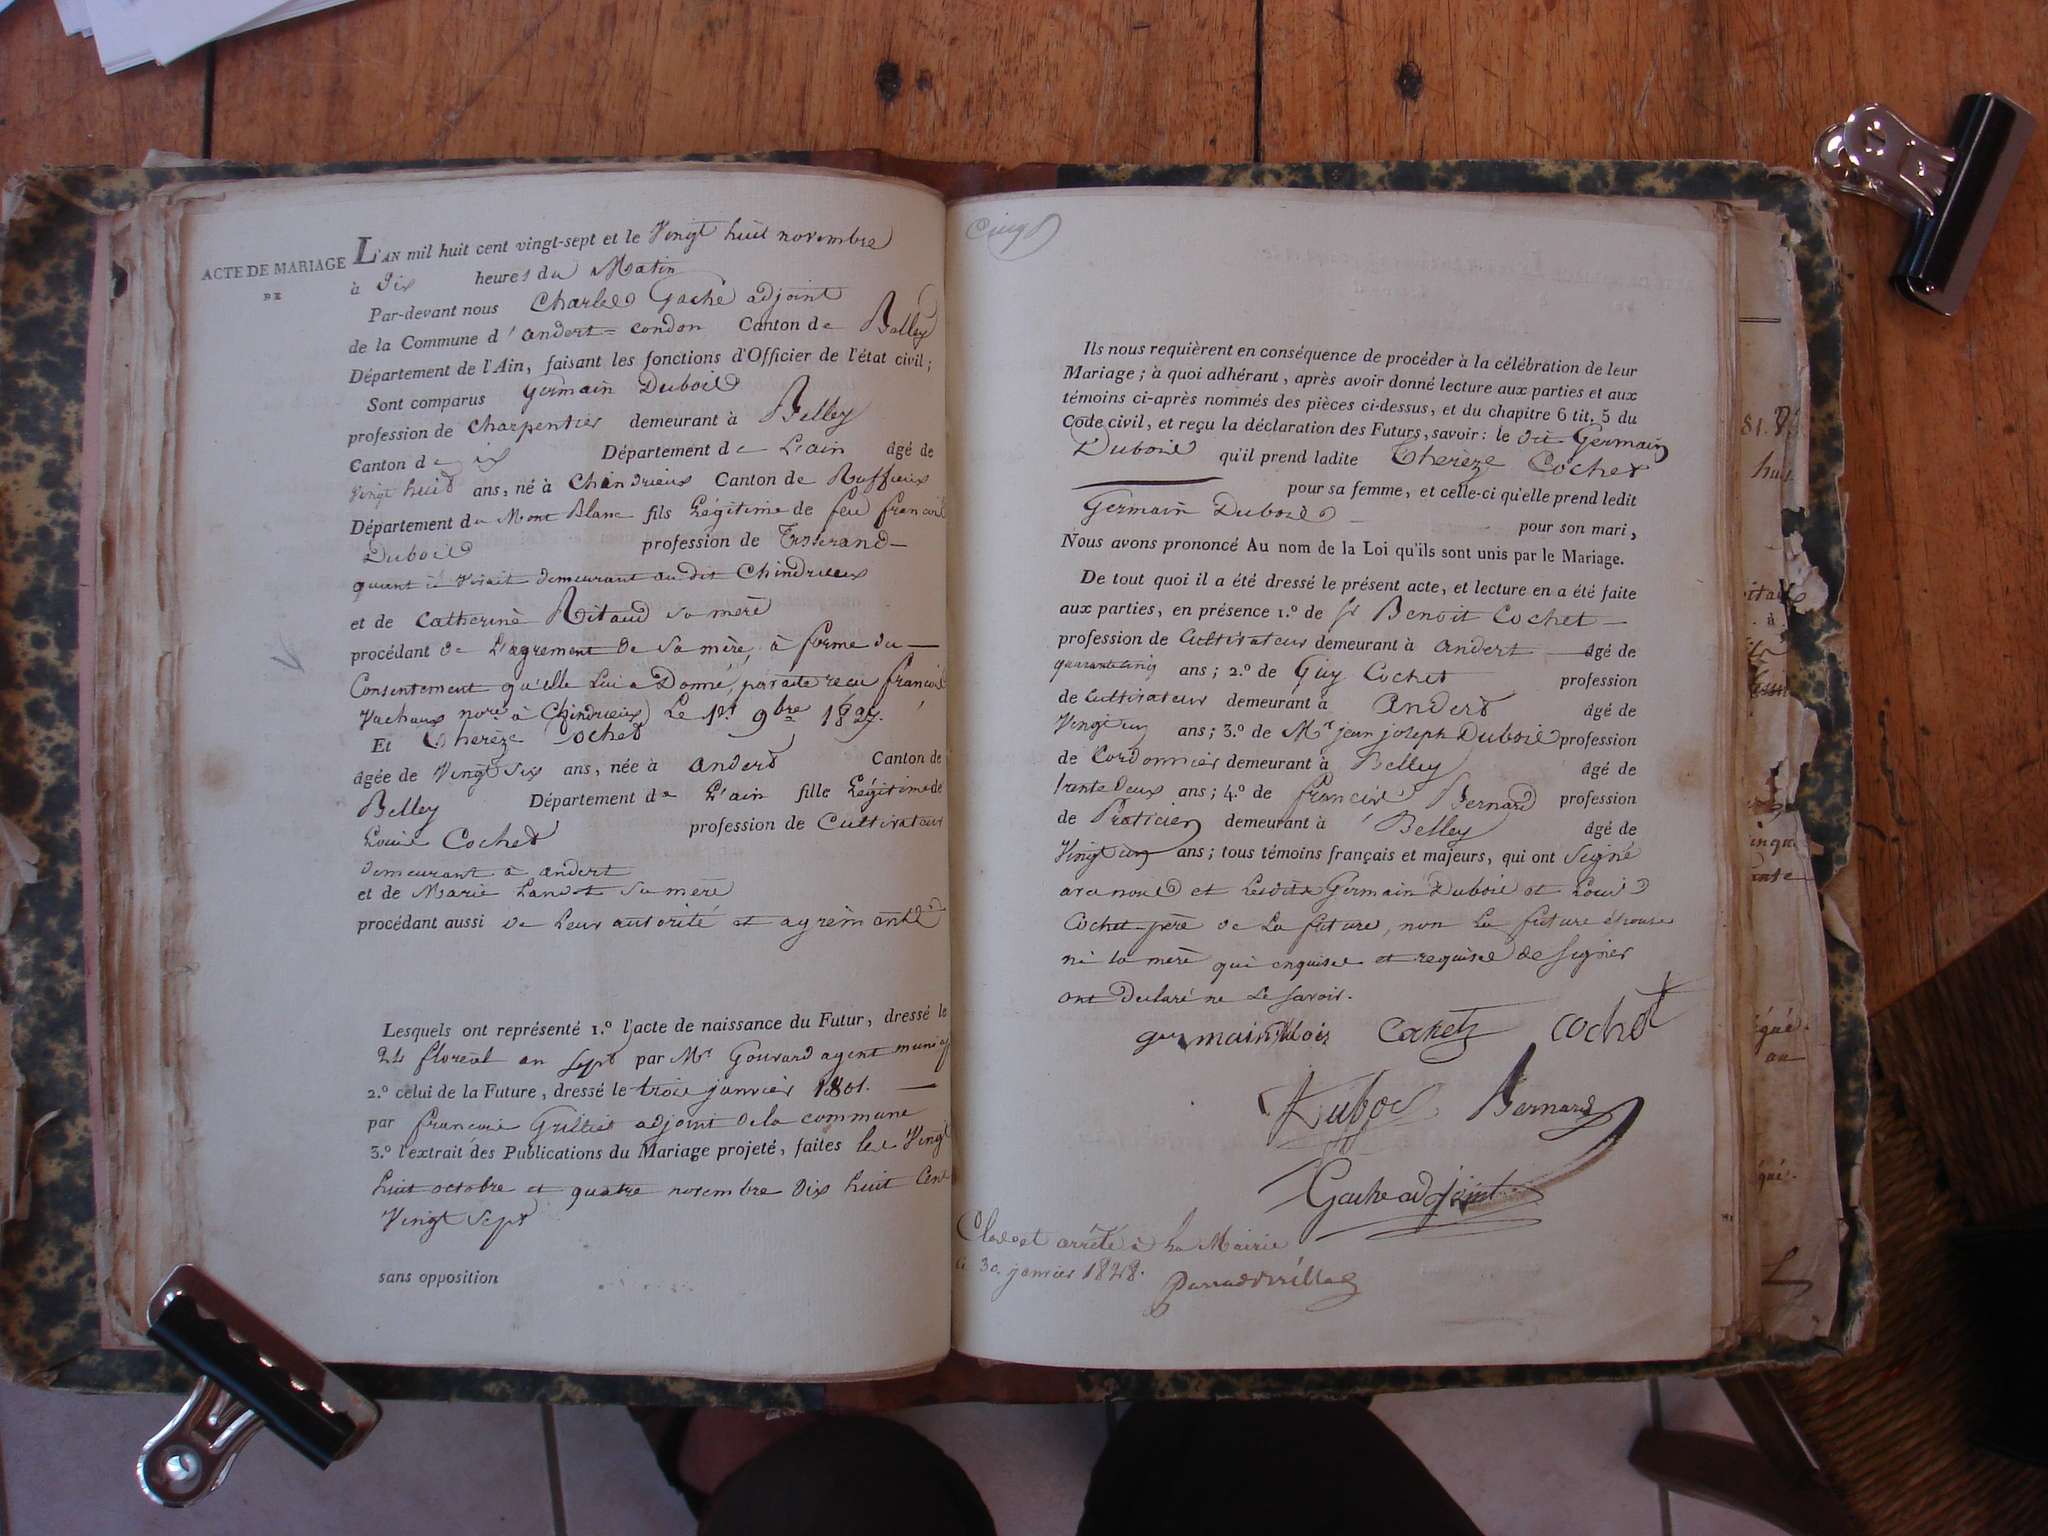 ACTE DE MARIAGE
DE
L'AN mil huit cent vingt-sept et le Vingt huit novembre
à Dix heures du Matin
Par-devant nous Charles Gache adjoint
de la Commune d'andert-condon Canton de Belley
Département de l'Ain, faisant les fonctions d'Officier de l'état civil;
Sont comparus Germain Dubois
profession de Charpentier demeurant à Belley
Canton de Département de L'ain âgé de
Vingt huit ans, né à Chindrieux Canton de Ruffieux
Département du Mont Blanc fils Légitime de feu francois
Dubois profession de Tisserand
quant il vivait demeurant au dit Chindrieux
et de Catherine Ritaud sa mère
procédant de L'agrement de sa mère, à forme du
Consentement qu'elle Lui a Donné, par acte recu francois
Vachaux nore à Chindrieux Le 1er 9bre 1827.
Et Therèze Cochet
âgée de Vingt six ans, née à andert Canton de
Belley Département de L'ain fille Légitime de
Louis Cochet profession de Cultivateur
demeurant à andert
et de Marie sa mère
procédant aussi de Leur autorité et agréments
Lesquels ont représenté 1.º l'acte de naissance du Futur, dressé le
24 floreal an sept par Mr Gouvard agent municip
2.º celui de la Future, dressé le trois janvier 1801.
par francois Grillet adjoint de la commune
3.º l'extrait des Publications du Mariage projeté, faites les Vingt
huit octobre et quatre novembre Dix huit Cent
Vingt Sept
sans opposition
Ils nous requièrent en conséquence de procéder à la célébration de leur
Mariage; à quoi adhérant, après avoir donné lecture aux parties et aux
témoins ci-après nommés des pièces ci-dessus, et du chapitre 6 tit. 5 du
Code civil, et reçu la déclaration des Futurs, savoir: le dit Germain
Dubois qu'il prend ladite Therèze Cochet
pour sa femme, et celle-ci qu'elle prend ledit
Germain Dubois pour son mari,
Nous avons prononcé Au nom de la Loi qu'ils sont unis par le Mariage.
De tout quoi il a été dressé le présent acte, et lecture en a été faite
aux parties, en présence 1.º de sr Benoit Cochet
profession de Cultivateur demeurant à andert âgé de
quarante cinq ans; 2.º de Guy Cochet profession
de Cultivateur demeurant à Andert âgé de
Vingt un ans; 3.º de Mr jean joseph Dubois profession
de Cordonnier demeurant à Belley âgé de
trente Deux ans; 4.º de francois Bernard profession
de Praticien demeurant à Belley âgé de
Vingt un ans; tous témoins français et majeurs, qui ont signé
avec nous et Lesdits Germain Dubois et Louis
Cochet père de La future, non La future épouse
ni la mère qui enquises et requises de signer
ont Declaré ne Le savoir.
germain dubois Cochet Cochet
Dubois Bernard
Gache adjoint
Clos et arrêté à La Mairie
le 30 janvier 1828.